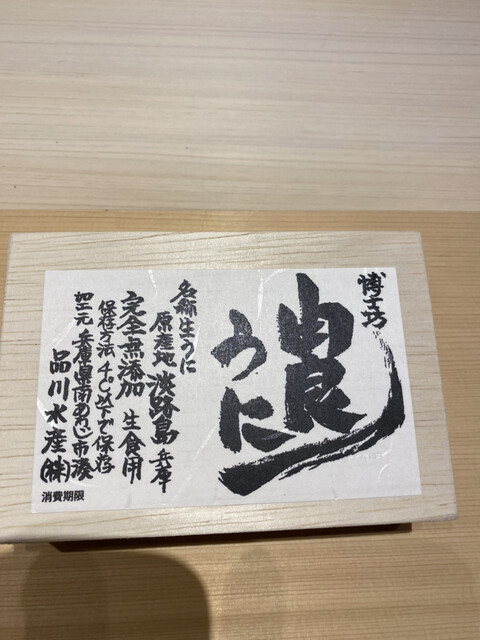 由良
うに
名称生うに
原産地 淡路島 兵庫
完全無添加 生食用
保存方法 4℃以下で保存
加工元 兵庫県南あわじ市湊
品川水産(株)
消費期限